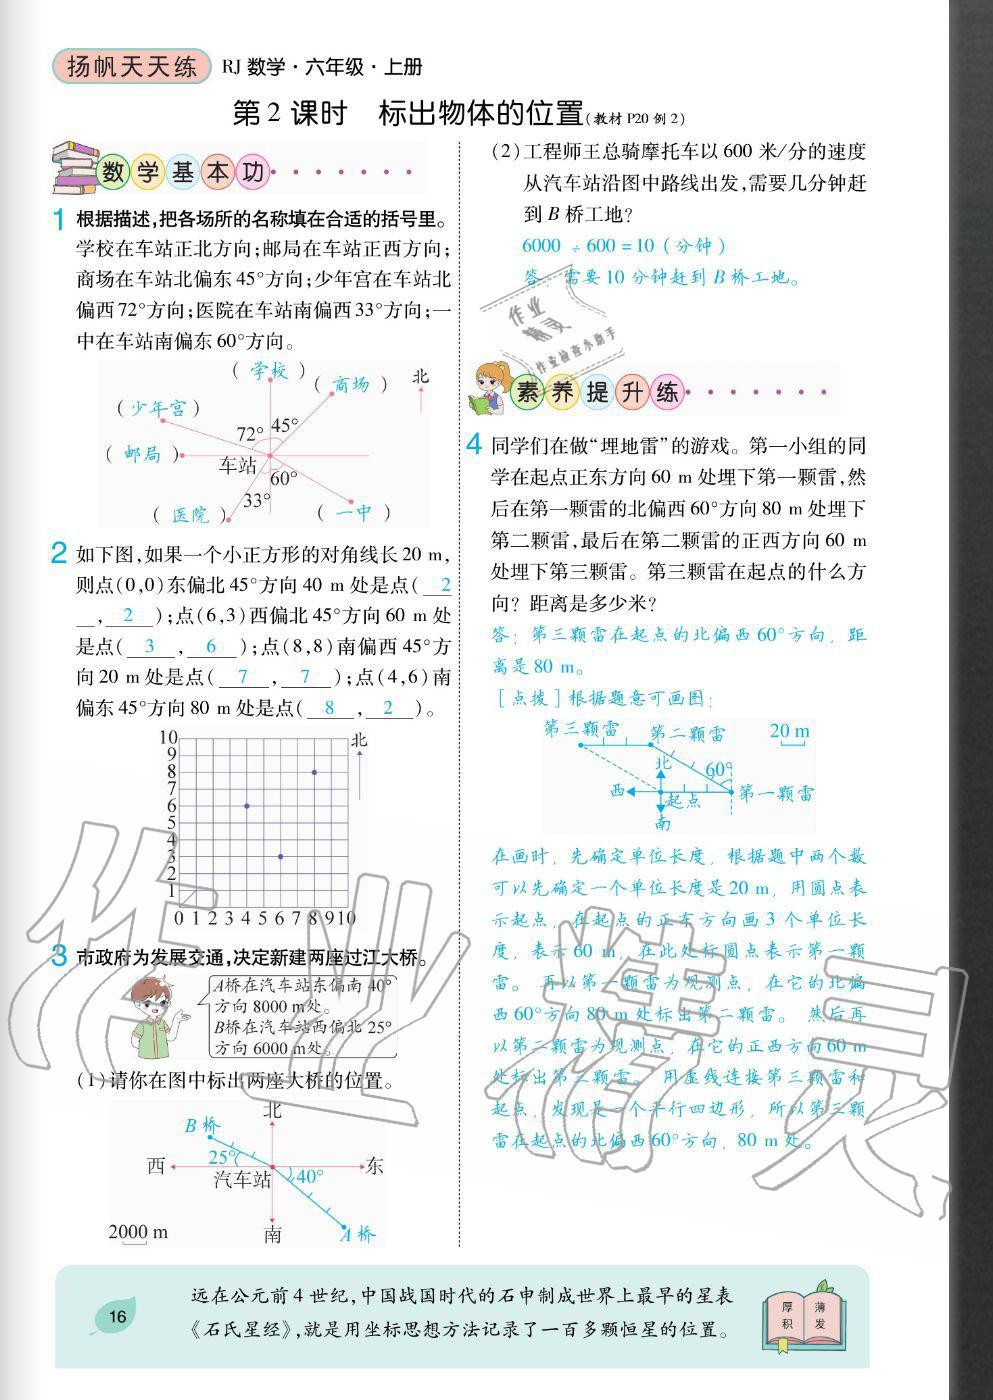 扬帆天天练 RJ 数学·六年级·上册
第 2 课时 标出物体的位置(教材 P20 例 2)
数学基本功
1 根据描述,把各场所的名称填在合适的括号里。
学校在车站正北方向;邮局在车站正西方向;
商场在车站北偏东 45°方向;少年宫在车站北
偏西 72°方向;医院在车站南偏西 33°方向;一
中在车站南偏东 60°方向。
( 学校 )
( 商场 ) 北
( 少年宫 )
72° 45°
( 邮局 )
车站 60°
33°
( 医院 ) ( 一中 )
2 如下图,如果一个小正方形的对角线长 20 m,
则点(0,0)东偏北 45°方向 40 m 处是点( 2
, 2 );点(6,3)西偏北 45°方向 60 m 处
是点( 3 , 6 );点(8,8)南偏西 45°方
向 20 m 处是点( 7 , 7 );点(4,6)南
偏东 45°方向 80 m 处是点( 8 , 2 )。
10 北
9
8
7
6
5
4
3
2
1
0 1 2 3 4 5 6 7 8 9 10
3 市政府为发展交通,决定新建两座过江大桥。
A桥在汽车站东偏南 40°
方向 8000 m处。
B桥在汽车站西偏北 25°
方向 6000 m处。
(1)请你在图中标出两座大桥的位置。
北
B 桥
25°
西 东
汽车站 40°
2000 m 南 A 桥
(2)工程师王总骑摩托车以 600 米/分的速度
从汽车站沿图中路线出发,需要几分钟赶
到 B 桥工地?
6000 ÷ 600 = 10 (分钟)
答:需要 10 分钟赶到 B 桥工地。
作业
精灵
作业检查小助手
素养提升练
4 同学们在做“埋地雷”的游戏。第一小组的同
学在起点正东方向 60 m 处埋下第一颗雷,然
后在第一颗雷的北偏西 60°方向 80 m 处埋下
第二颗雷,最后在第二颗雷的正西方向 60 m
处埋下第三颗雷。第三颗雷在起点的什么方
向?距离是多少米?
答:第三颗雷在起点的北偏西 60°方向,距
离是 80 m。
[点拨]根据题意可画图:
第三颗雷 第二颗雷 20 m
北 60°
西 起点 第一颗雷
南
在画时,先确定单位长度,根据题中两个数
可以先确定一个单位长度是 20 m,用圆点表
示起点,在起点的正东方向画 3 个单位长
度,表示 60 m,在此处标圆点表示第一颗
雷。再以第一颗雷为观测点,在它的北偏
西 60°方向 80 m 处标出第二颗雷。然后再
以第二颗雷为观测点,在它的正西方向 60 m
处标出第三颗雷。用虚线连接第三颗雷和
起点,发现是一个平行四边形,所以第三颗
雷在起点的北偏西 60°方向,80 m 处。
作业精灵
16
远在公元前 4 世纪,中国战国时代的石申制成世界上最早的星表
《石氏星经》,就是用坐标思想方法记录了一百多颗恒星的位置。
厚积
薄发